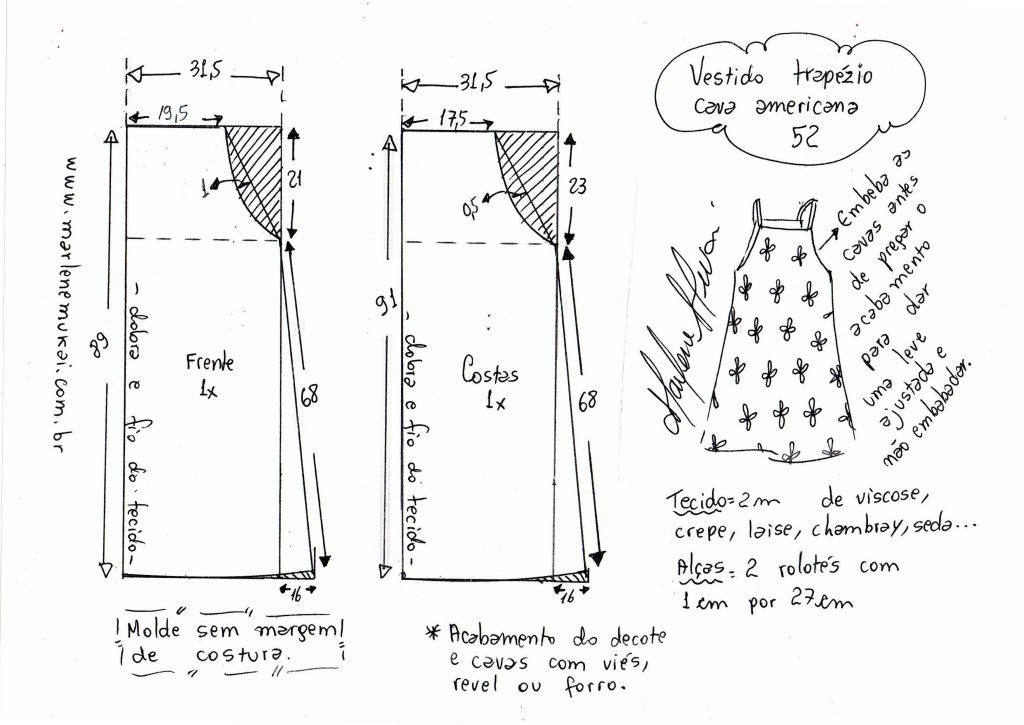 Vestido trapézio
cava americana
52
31,5
19,5
1
21
89
- dobra e fio do tecido -
Frente
1x
68
16
31,5
17,5
0,5
23
91
- dobra e fio do tecido -
Costas
1x
68
16
www.marlenemukai.com.br
Embeba as
cavas antes
de pregar o
acabamento
para dar
uma leve
ajustada e
não embabadar.
Marlene Mukai
Tecido = 2m de viscose,
crepe, laise, chambray, seda...
Alças = 2 rolotês com
1 cm por 27 cm
Molde sem margem
de costura.
* Acabamento do decote
e cavas com viés,
revel ou forro.